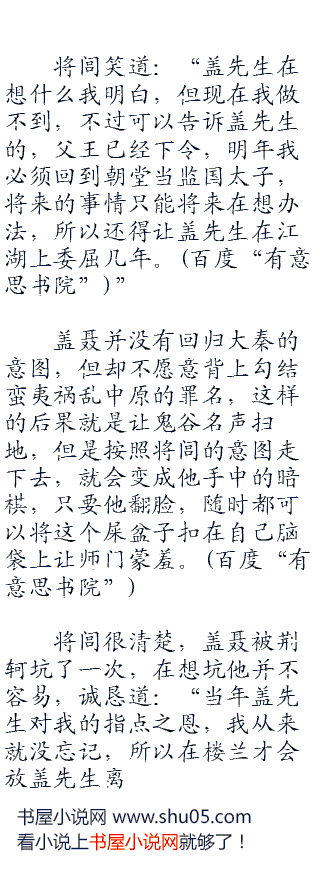 将闾笑道：“盖先生在
想什么我明白，但现在我做
不到，不过可以告诉盖先生
的，父王已经下令，明年我
必须回到朝堂当监国太子，
将来的事情只能将来在想办
法，所以还得让盖先生在江
湖上委屈几年。(百度“有意
思书院”)”
盖聂并没有回归大秦的
意图，但却不愿意背上勾结
蛮夷祸乱中原的罪名，这样
的后果就是让鬼谷名声扫
地，但是按照将闾的意图走
下去，就会变成他手中的暗
棋，只要他翻脸，随时都可
以将这个屎盆子扣在自己脑
袋上让师门蒙羞。(百度“有
意思书院”)
将闾很清楚，盖聂被荆
轲坑了一次，在想坑他并不
容易，诚恳道：“当年盖先
生对我的指点之恩，我从来
就没忘记，所以在楼兰才会
放盖先生离
书屋小说网 www.shu05.com
看小说上书屋小说网就够了！